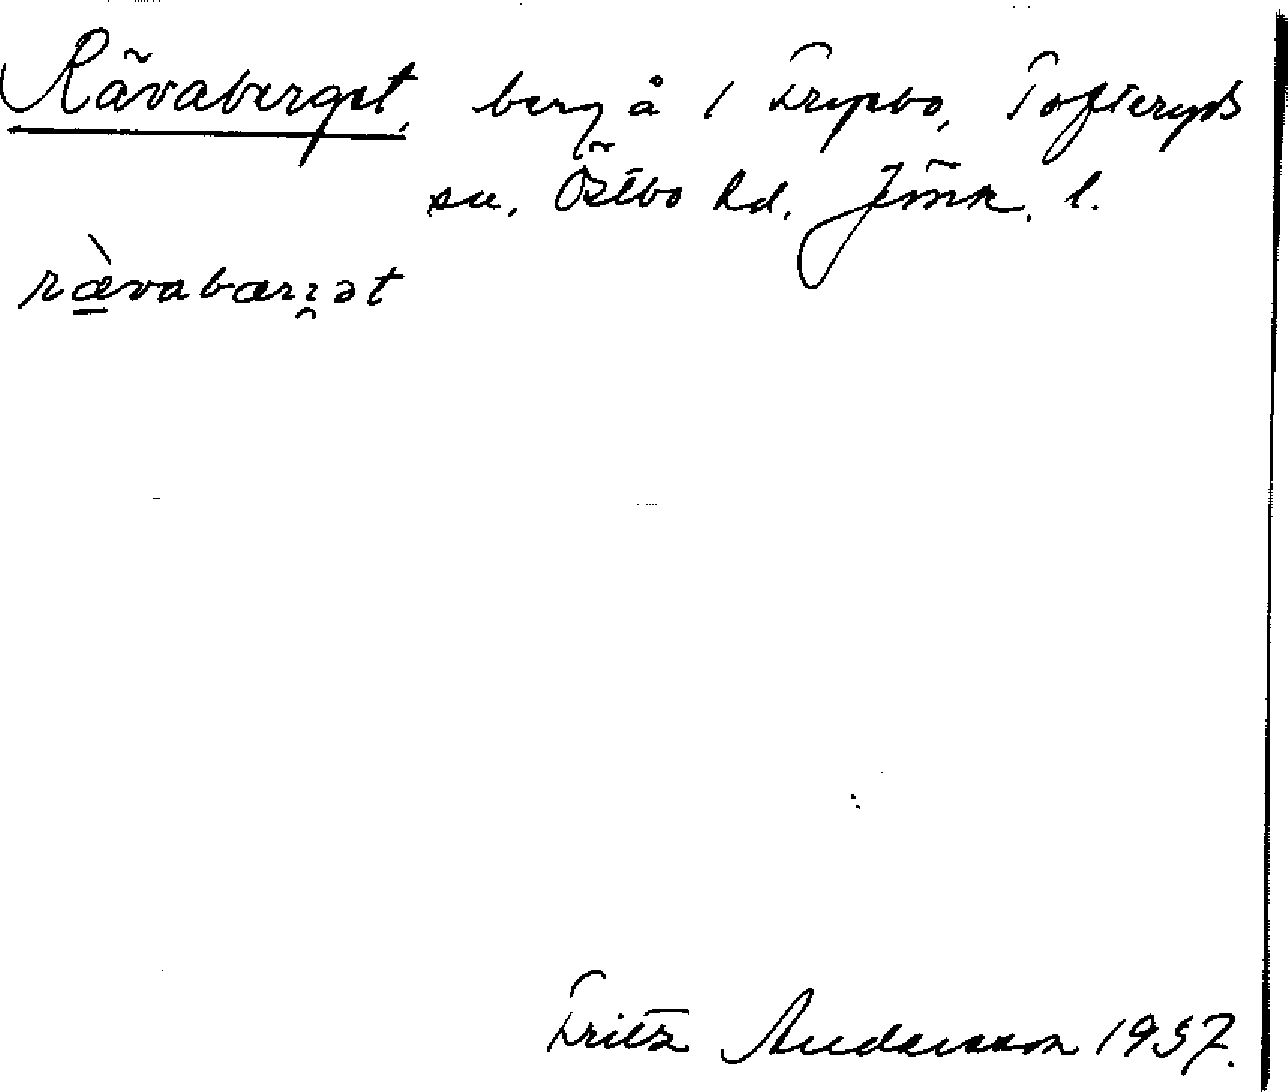 Rävaberget, berg å 1 Frypbo, Tofteryds
sn, Östbo hd. Jönk. l.
rävabærɜət
Fritz Andersson 1937.